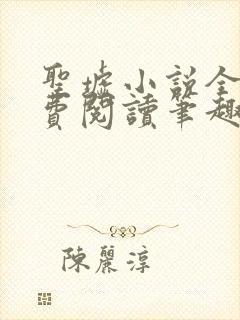 聖墟小說全
費閱讀筆趣
陳麗淳